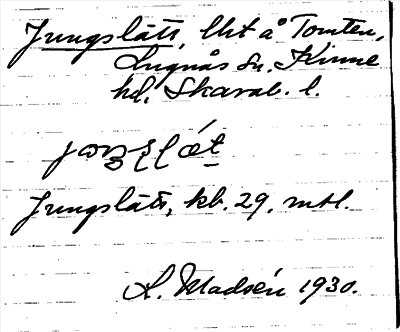 Jungslätt, lht å Tomten,
Lugnås sn. Kinne
hd. Skarab. l.
Jungslätt, kb. 29, mtl.
L. Madsén 1930.